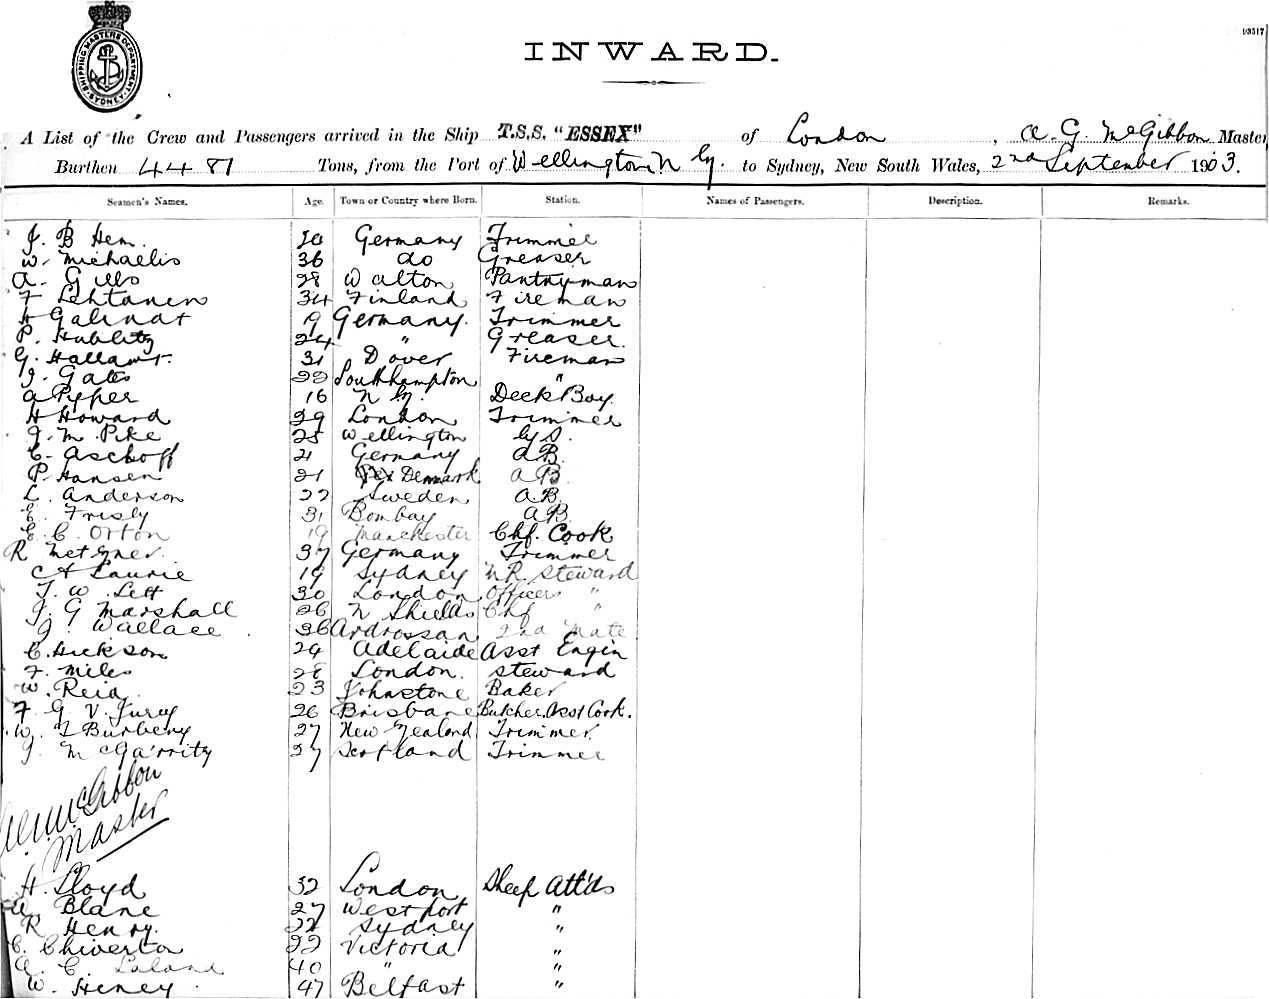 SHIPPING MASTERS DEPARTMENT SYDNEY
93517
INWARD.
A List of the Crew and Passengers arrived in the Ship T.S.S. "ESSEX" of London, A. G. McGibbon Master
Burthen 4481 Tons, from the Port of Wellington N Z. to Sydney, New South Wales, 2nd September 1903.
Seamen's Names. Age. Town or Country where Born. Station. Names of Passengers. Description. Remarks.
J. B Hem. Germany Trimmer
W. Michaelis 36 do Greaser
A. Gibbs 28 Walton Pantryman
F Lehtanen 34 Finland Fireman
H Galinat 19 Germany. Trimmer
P. 24 " Greaser.
G. 31 Dover Fireman
J. Gates 22 Southampton "
A Pyper 16 N Z. Deck Boy.
H Howard 29 London Trimmer
J. M. Pike 25 Wellington O.S.
C. Aschoff 21 Germany A.B.
P. Hansen 21 Denmark A B.
L. Anderson 22 Sweden A.B.
C. 31 Bombay A B.
E. C. Orton 19 Manchester Chf. Cook
R Metzner. 37 Germany Trimmer
C A Laurie 19 Sydney M.R. Steward
T. W. Lett 30 London Officers "
J. G Marshall 26 N Shields Chf "
J. Wallace 36 Ardrossan 2nd Mate
C. Hickson 24 Adelaide Asst Engin
F. Miles 28 London. Steward
W. Reid 23 Johnstone Baker
F. G V. Jurey 26 Brisbane Butcher. Asst Cook.
W. T Burbery 27 New Zealand Trimmer.
J. McGarrity 27 Scotland Trimmer
McGibbon
Master
H. Lloyd 32 London Sheep Att'ds
A. Blane 27 Westport "
R Henry. 22 Sydney "
C. Chiverton 22 Victoria "
A. C. Laland 40 " "
W. Heney. 47 Belfast "